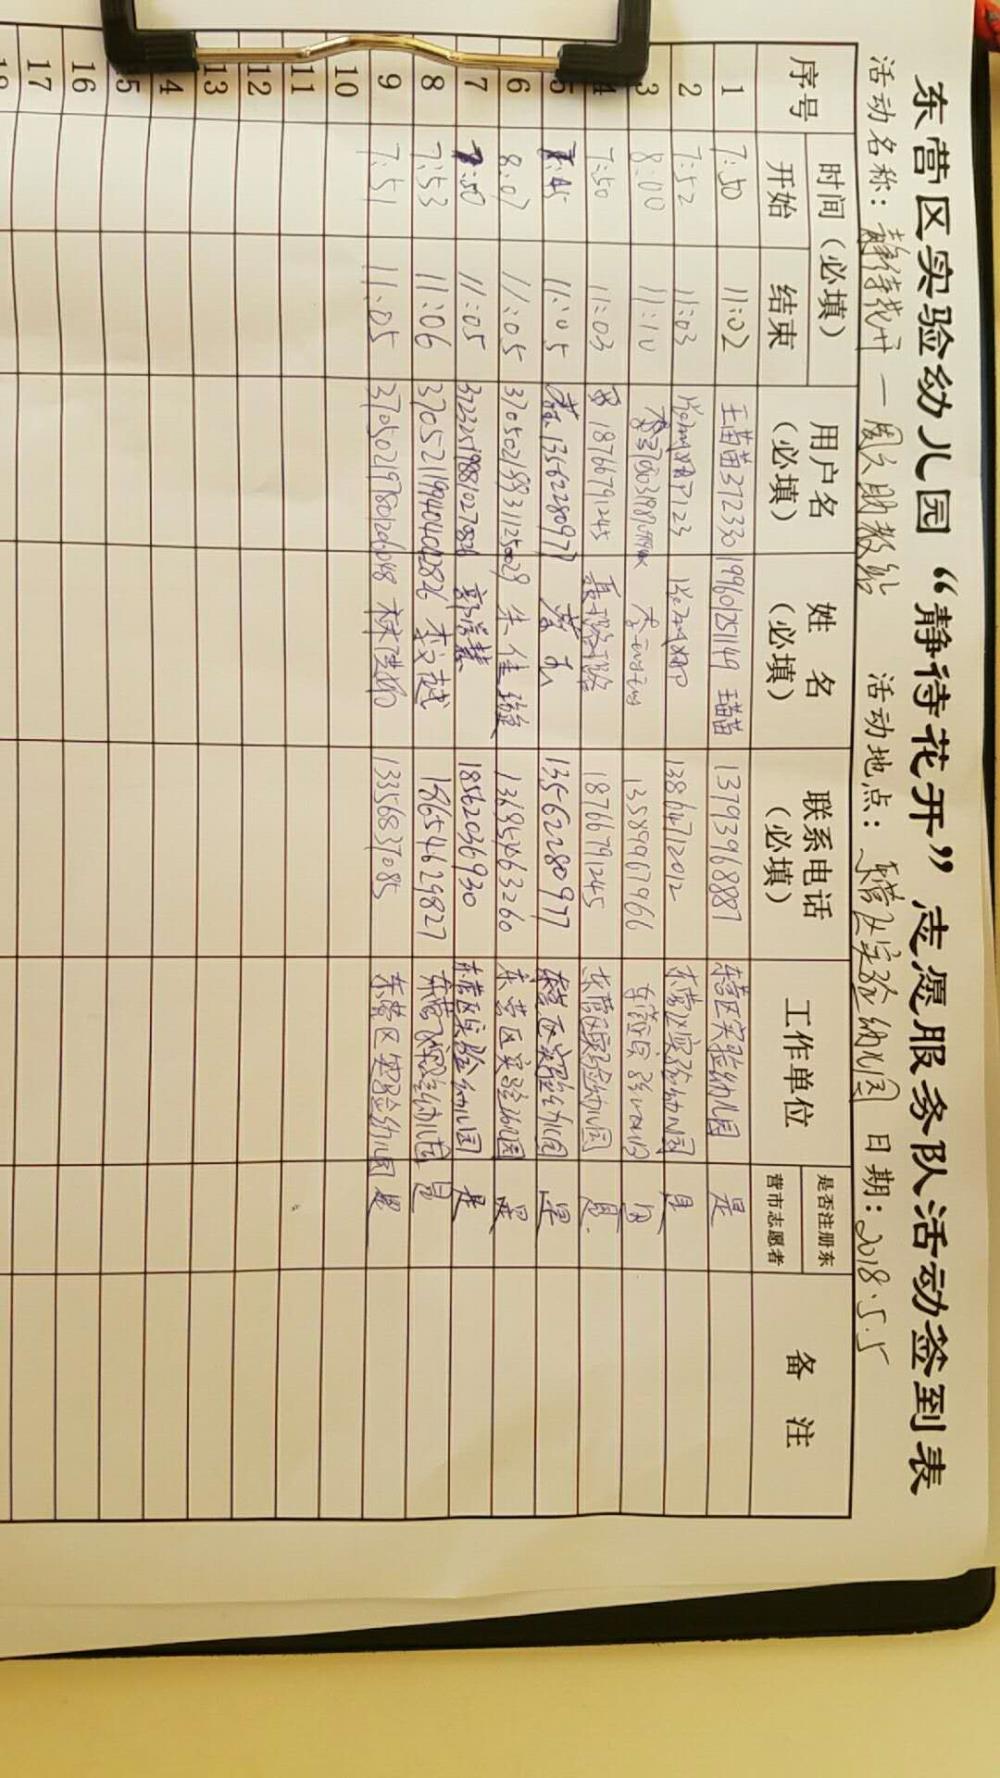 东营区实验幼儿园“静待花开”志愿服务队活动签到表
活动名称：静待花开 一周久助教站 活动地点：东营区实验幼儿园 日期：2018.5.5
序号 时间（必填） 用户名（必填） 姓名（必填） 联系电话（必填） 工作单位 是否注册东营市志愿者 备注
开始 结束
1 7:50 11:02 王苗苗372330199601251149 王苗苗 13793968887 东营区实验幼儿园 是
2 7:52 11:03 13864712012 东营区实验幼儿园 是
3 8:00 11:10 13589967966 是
4 7:50 11:03 18766791245 聂璐璐 18766791245 东营区实验幼儿园 是
5 7:45 11:05 13562280977 13562280977 东营区实验幼儿园 是
6 8:07 11:05 370502199311250029 朱佳璇 13695463260 东营区实验幼儿园 是
7 7:50 11:05 18562036930 东营区实验幼儿园 是
8 7:53 11:06 370521199404042826 李文越 18654629827 东营区实验幼儿园 是
9 7:51 11:05 13356837085 东营区实验幼儿园 是
10
11
12
13
4
5
16
17